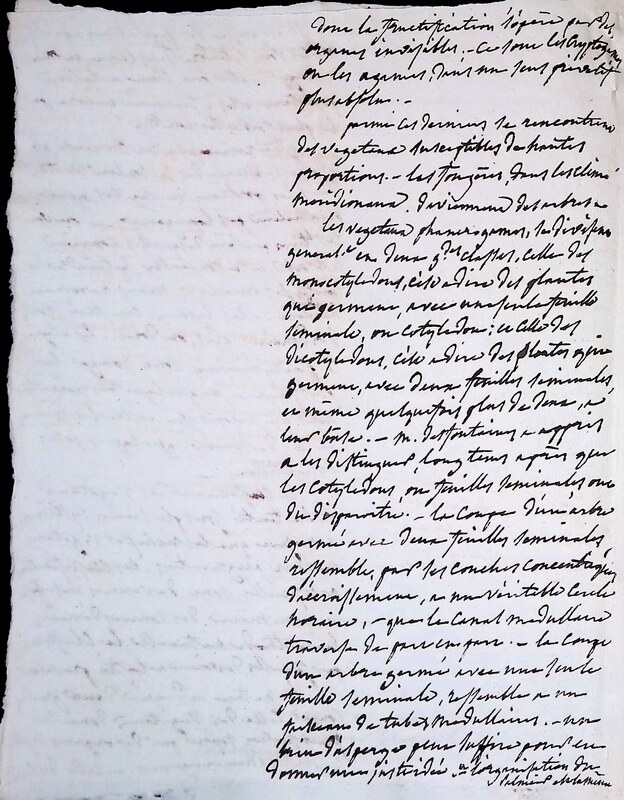 dont la fructification s'opère par des
organes invisibles. - ce sont les cryptogames
ou les agames, dans un sens privatif
plus absolu. -
parmi ces derniers se rencontrent
des vegetaux susceptibles de hautes
proportions. - les fougères, dans les climats
méridionaux deviennent des arbres -
les vegetaux phanerogames, se divisent
general.t en deux g.des classes, celle des
monocotyledons, c'est a dire des plantes
qui germent, avec une seule feuille
seminale, ou cotyledon; et celle des
dicotyledons, c'est a dire des plantes qui
germent, avec deux feuilles seminales,
et même quelquefois plus de deux, a
leur base. - m. desfontaines a appris
a les distinguer, longtems après que
les cotyledons, ou feuilles seminales ont
du disparoitre. - la coupe d'un arbre
germé avec deux feuilles seminales
ressemble, par ses couches concentriques
d'accroissement, a un véritable cercle
horaire, - que le canal medullaire
traverse de part en part. - la coupe
d'un arbre germé avec une seule
feuille seminale, ressemble a un
faisceau de tubes medullaires. - un
brin d'asperge peut suffire pour en
donner une juste idée l'organisation du
palmier est la même